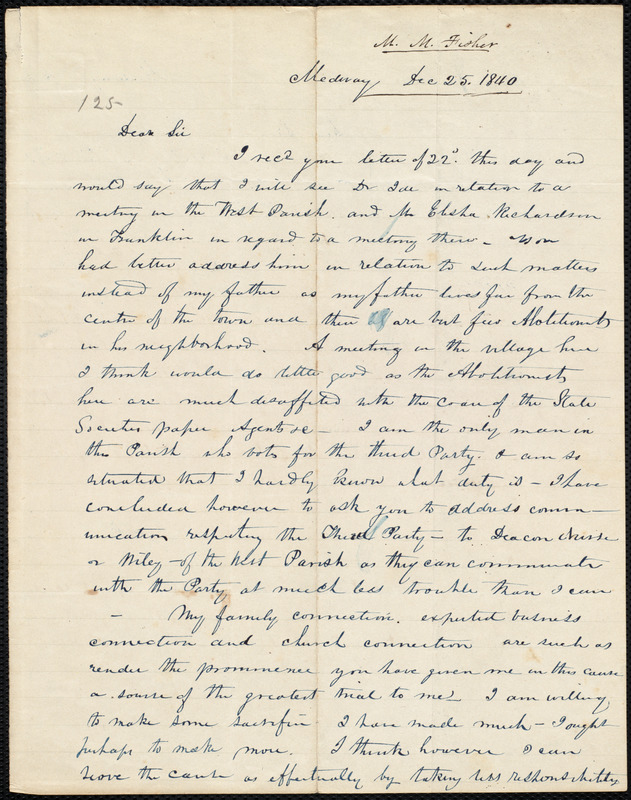 M. M. Fisher
Medway Dec 25. 1840
125
Dear Sir
I recd your letter of 22d. this day and
would say that I will see Dr Ide in relation to a
meeting in the West Parish. and Mr Elisha Richardson
in Franklin in regard to a meeting there - You
had better address him in relation to such matters
instead of my father as my father lives far from the
centre of the town and there are but few Abolitionists
in his neighborhood. A meeting in the village here
I think would do little good as the Abolitionists
here are much disaffected with the course of the State
Societies paper Agents &c - I am the only man in
this Parish who vots for the third Party. I am so
situated that I hardly know what duty is - I have
concluded however to ask you to address comm-
unication respecting the Third Party - to Deacon
or Wiley - of the West Parish as they can communicate
with the Party at much less trouble than I can
- My family connection. expected business
connection and church connection are such as
render the prominence you have given me in this cause
a source of the greatest trial to me I am willing
to make some sacrifice I have made much - I ought
perhaps to make more. I think however I can
serve the cause as effectually by taking less responsibilities